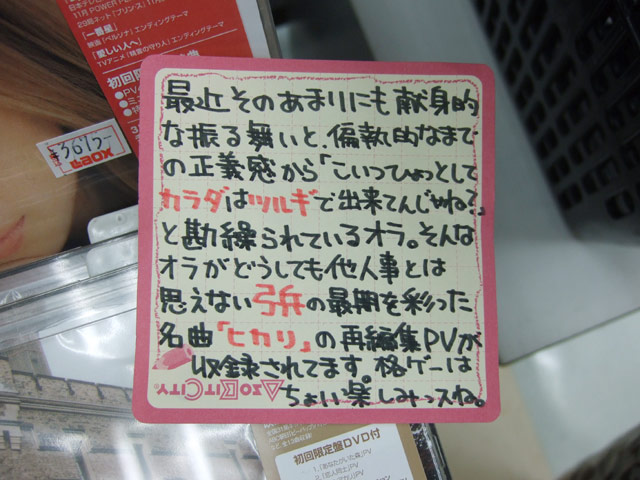 日本テレ
11R POWER P
29局ネット「プリンス」11月
「一番星」
映画「ペルソナ」エンディングテーマ
「愛しい人へ」
TVアニメ「精霊の守り人」エンディングテーマ
初回限
¥3675-
BOX
最近そのあまりにも献身的
な振る舞いと、偏執的なまで
の正義感から「こいつひょっとして
カラダはツルギで出来てんじゃね?」
と勘繰られているオラ。そんな
オラがどうしても他人事とは
思えない弓兵の最期を彩った
名曲「ヒカリ」の再編集PVが
収録されてます。格ゲーは
ちょい楽しみっスね。
ASOBITCITY
初回限定盤DVD付
1.「あなたがいた森」PV